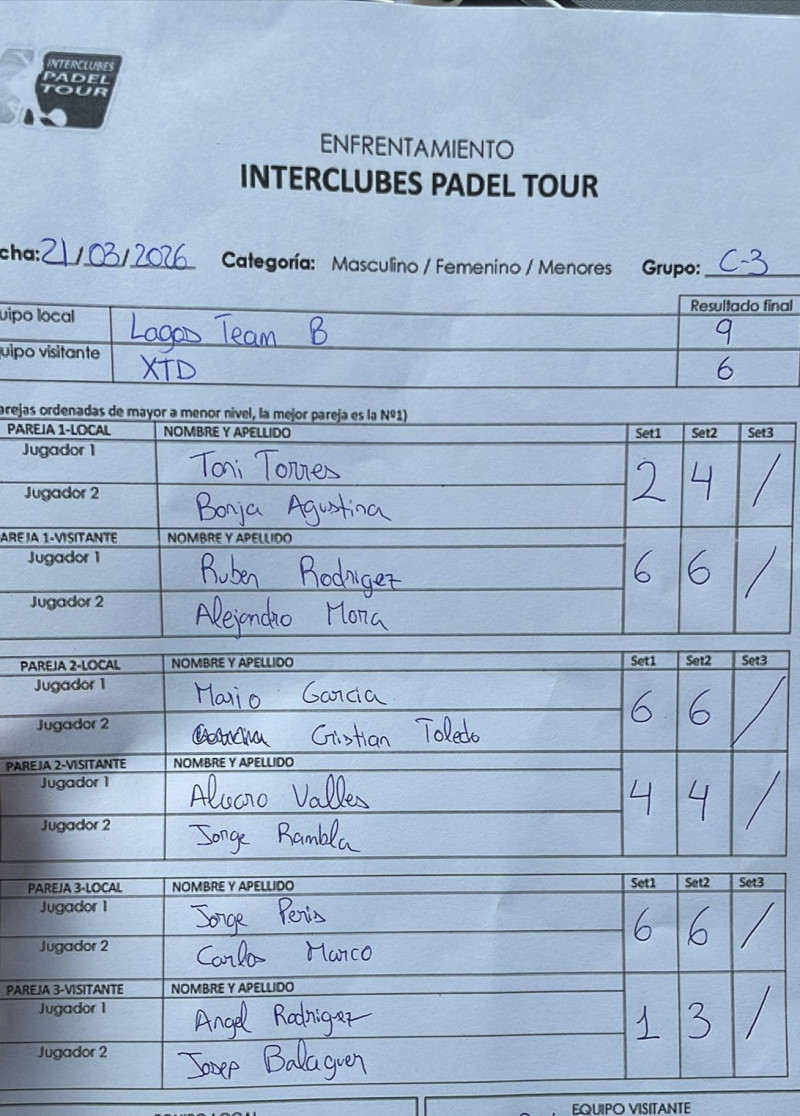 INTERCLUBES
PADEL
TOUR
ENFRENTAMIENTO
INTERCLUBES PADEL TOUR
cha: 21/03/2026 Categoría: Masculino / Femenino / Menores Grupo: C-3
Resultado final
uipo local Lagos Team B 9
uipo visitante XTD 6
arejas ordenadas de mayor a menor nivel, la mejor pareja es la Nº1)
PAREJA 1-LOCAL NOMBRE Y APELLIDO Set1 Set2 Set3
Jugador 1 Toni Torres 2 4 /
Jugador 2 Borja Agustina
AREJA 1-VISITANTE NOMBRE Y APELLIDO
Jugador 1 Ruben Rodrigez 6 6 /
Jugador 2 Alejandro Mora
PAREJA 2-LOCAL NOMBRE Y APELLIDO Set1 Set2 Set3
Jugador 1 Mario Garcia 6 6 /
Jugador 2 Cristian Toledo
PAREJA 2-VISITANTE NOMBRE Y APELLIDO
Jugador 1 Alvaro Valles 4 4 /
Jugador 2 Jorge Rambla
PAREJA 3-LOCAL NOMBRE Y APELLIDO Set1 Set2 Set3
Jugador 1 Jorge Peris 6 6 /
Jugador 2 Carlos Marco
PAREJA 3-VISITANTE NOMBRE Y APELLIDO
Jugador 1 Angel Rodriguez 1 3 /
Jugador 2 Josep Balaguer
EQUIPO LOCAL EQUIPO VISITANTE